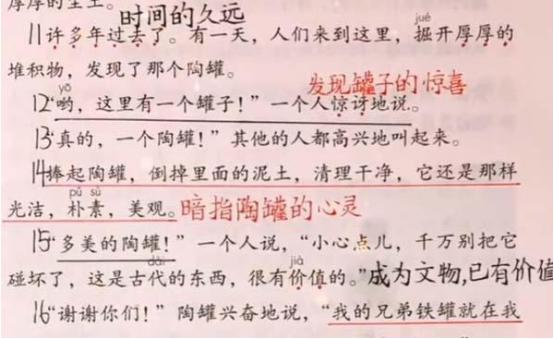 厚厚的尘土。
时间的久远
11许多年过去了。有一天，人们来到这里，掘开厚厚的
jué
堆积物，发现了那个陶罐。
发现罐子的惊喜
yō
12“哟，这里有一个罐子！”一个人惊讶地说。
13“真的，一个陶罐！”其他的人都高兴地叫起来。
14捧起陶罐，倒掉里面的泥土，清理干净，它还是那样
pǔ sù
光洁，朴素，美观。暗指陶罐的心灵
15“多美的陶罐！”一个人说，“小心点儿，千万别把它
dài jià
碰坏了，这是古代的东西，很有价值的。”成为文物,已有价值
16“谢谢你们！”陶罐兴奋地说，“我的兄弟铁罐就在我